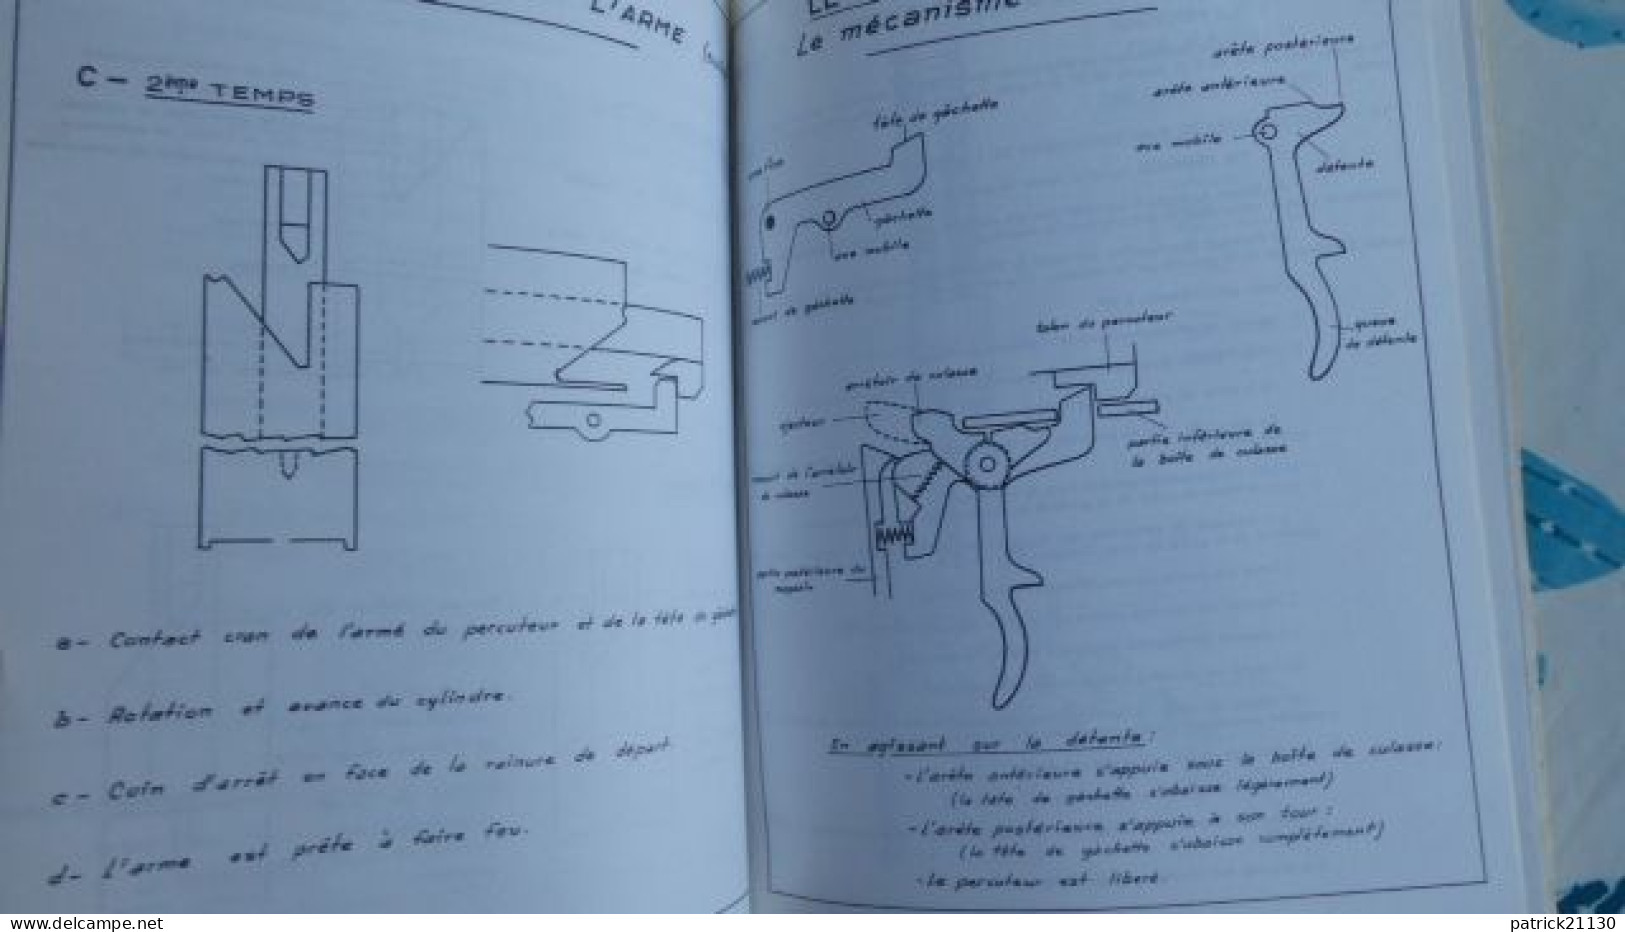 L'ARME
C - 2ème TEMPS
a - Contact cran de l'armé du percuteur et de la tête de
b - Rotation et avance du cylindre.
c - Coin d'arrêt en face de la rainure de départ.
d - L'arme est prête à faire feu.
Le mécanisme
arête postérieure
arête antérieure
tête de gâchette
axe mobile
détente
gâchette
axe mobile
ressort de gâchette
queue
de détente
talon du percuteur
arrêtoir de culasse
éjecteur
partie inférieure de
la boîte de culasse
ressort de l'arrêtoir
de culasse
partie postérieure du
magasin
En agissant sur la détente :
- L'arête antérieure s'appuie sous la boîte de culasse :
(la tête de gâchette s'abaisse légèrement)
- L'arête postérieure s'appuie à son tour :
(la tête de gâchette s'abaisse complètement)
- Le percuteur est libéré.
patrick21130